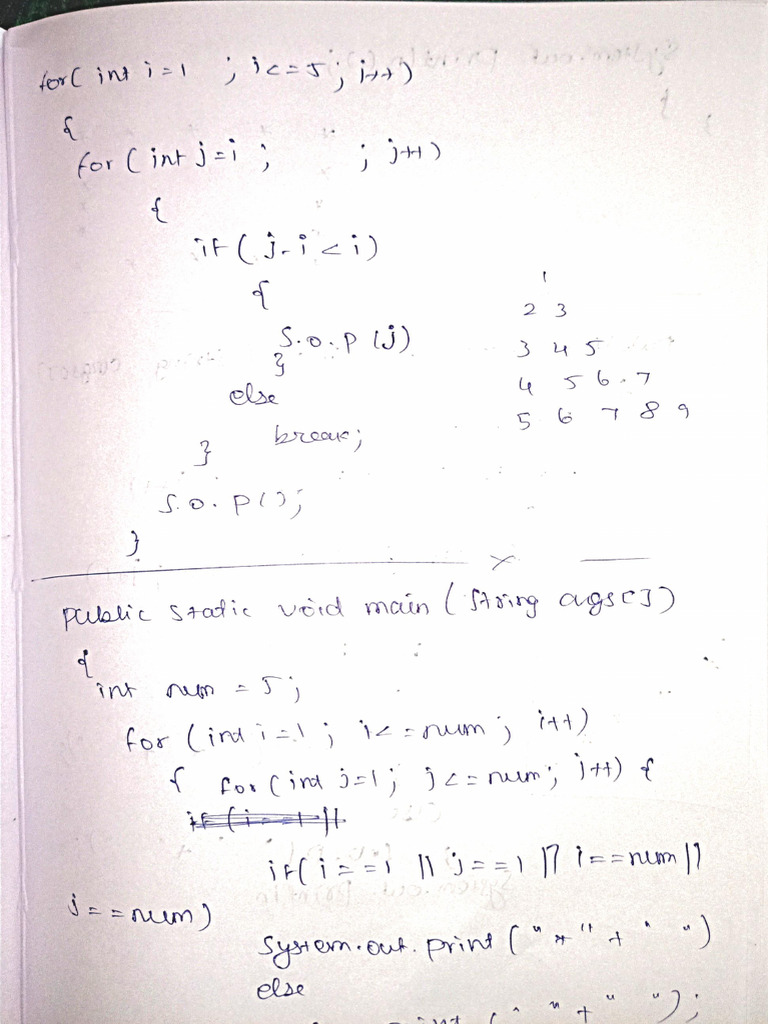 for( int i=1 ; i<=5; i++)
{
for ( int j=i ; ; j++)
{
if ( j-i < i)
{
S.o.p (j)
}
else
break;
}
S.o.p();
}
1
2 3
3 4 5
4 5 6 7
5 6 7 8 9
x
public static void main ( String args[])
{
int num = 5 ;
for ( int i=1 ; i<=num ; i++)
{ for ( int j=1 ; j<=num ; j++) {
if( i==1 || j==1 || i==num ||
j==num)
System.out.print ("*"+" ")
else
print (" "+" ");